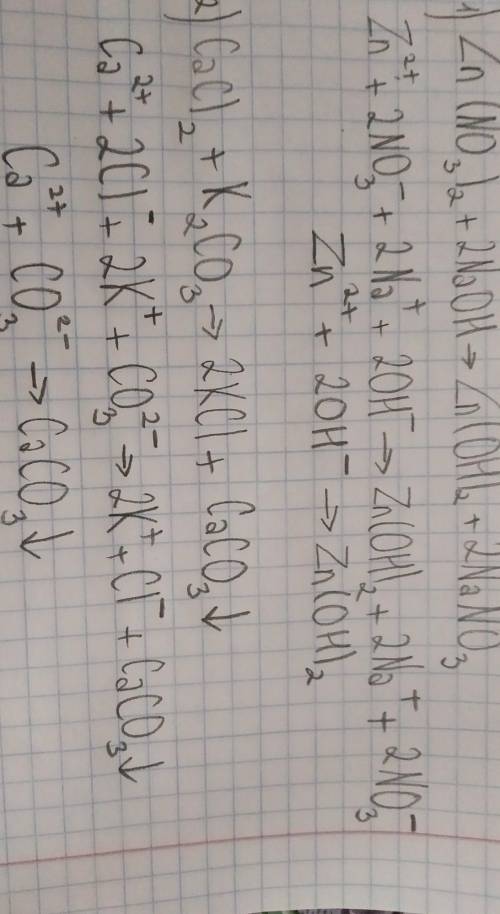 1) Zn(NO₃)₂ + 2NaOH → Zn(OH)₂ + 2NaNO₃
Zn²⁺ + 2NO₃⁻ + 2Na⁺ + 2OH⁻ → Zn(OH)₂ + 2Na⁺ + 2NO₃⁻
Zn²⁺ + 2OH⁻ → Zn(OH)₂
2) CaCl₂ + K₂CO₃ → 2KCl + CaCO₃↓
Ca²⁺ + 2Cl⁻ + 2K⁺ + CO₃²⁻ → 2K⁺ + Cl⁻ + CaCO₃↓
Ca²⁺ + CO₃²⁻ → CaCO₃↓